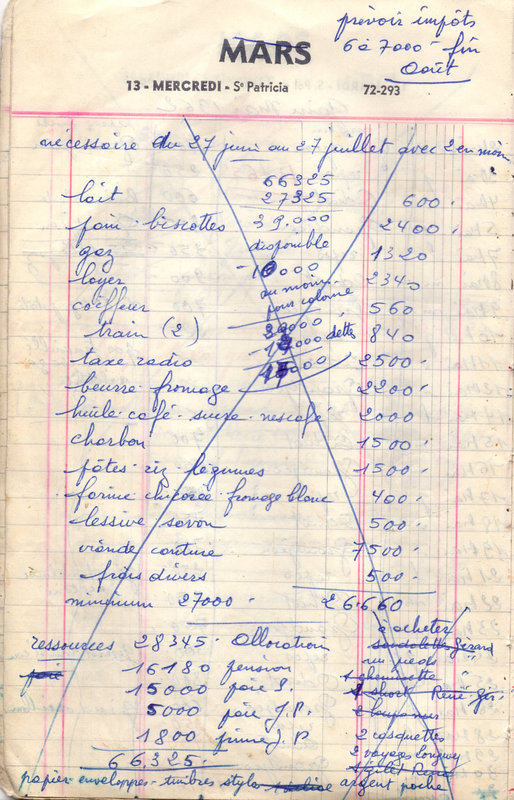 prévoir impôts
6 à 7000 - fin
Août
MARS
13 - MERCREDI - Se Patricia 72-293
nécessaire du 27 juin au 27 juillet avec 2 en moins
66325
lait 27325 600
pain - biscottes 39.000 2400
gaz disponible 1320
loyer - 10000 2340
coiffeur au moins pour colonie 560
train (2) 840
dettes
taxe radio 2500
beurre - fromage 2200
huile - café - sucre - nescafé 2000
charbon 1500
pâtes - riz - légumes 1500
farine chicorée - fromage blanc 400
lessive savon 500
viande couture 7500
frais divers 500
minimum 27000 26.660
à acheter
ressources 28345 - Allocation sandalettes Gérard
paie 16180 pension nu pieds "
1 chemisette "
15000 paie S. 1 short René Gér.
5000 paie J.P.
1800 prime J.P 2 casquettes
66.325 -
papier - enveloppes - timbres stylos argent poche